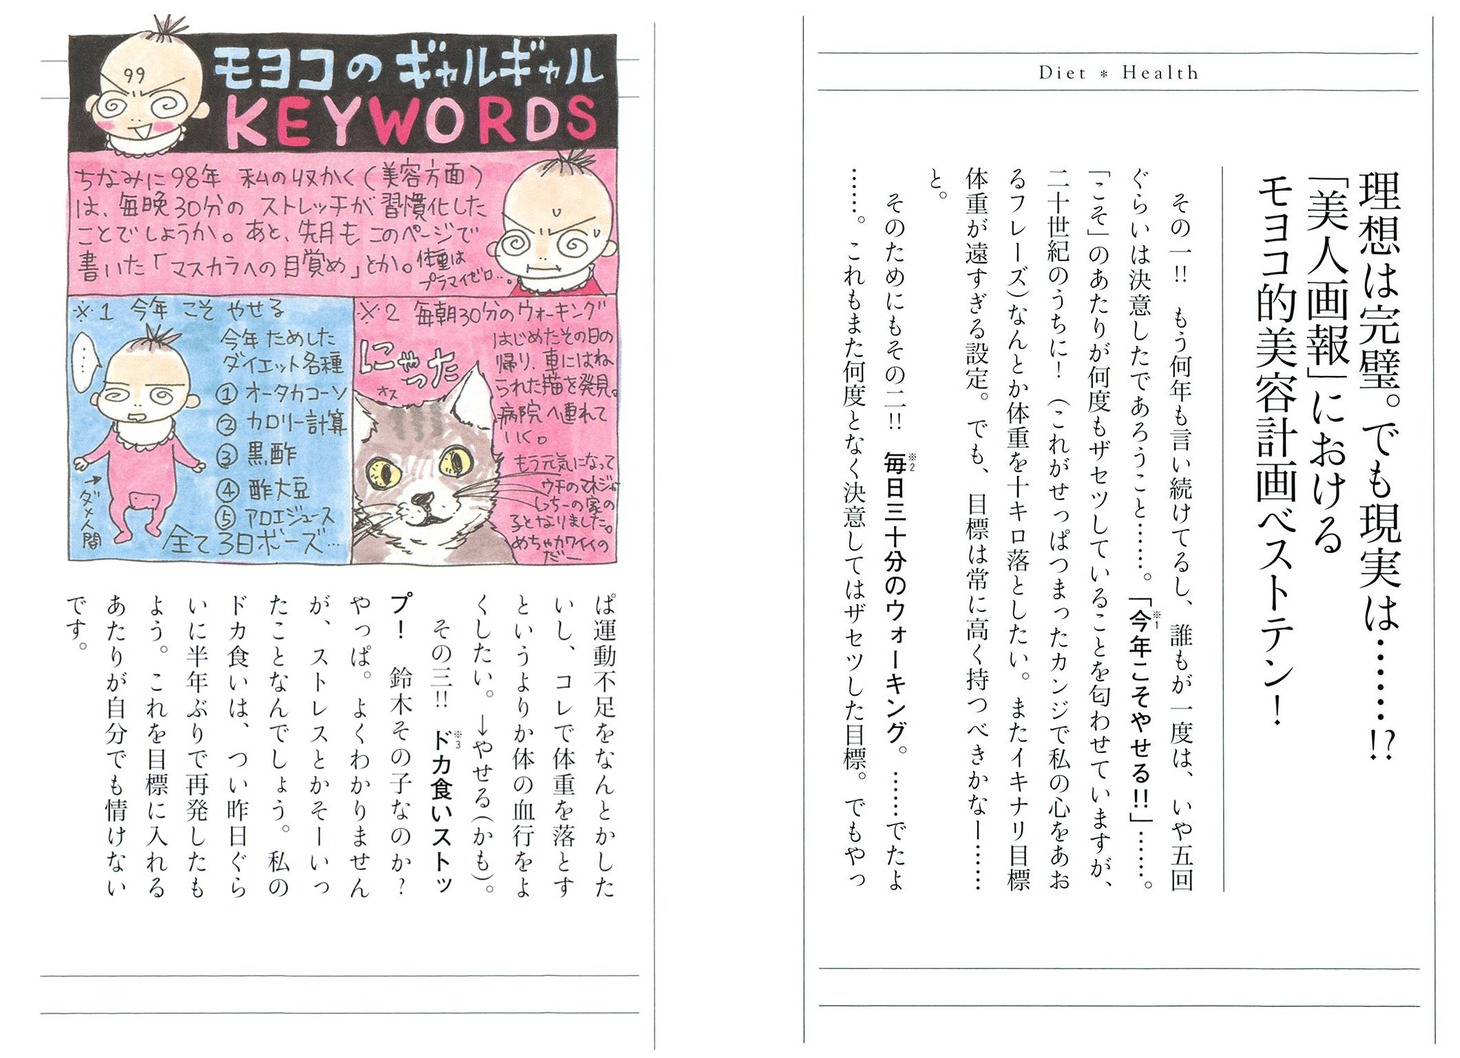 Diet * Health
理想は完璧。でも現実は……!?
「美人画報」における
モヨコ的美容計画ベストテン！
その一!! もう何年も言い続けてるし、誰もが一度は、いや五回
ぐらいは決意したであろうこと……。「今年こそやせる!!」……。
※1
「こそ」のあたりが何度もザセツしていることを匂わせていますが、
二十世紀のうちに！（これがせっぱつまったカンジで私の心をあお
るフレーズ）なんとか体重を十キロ落としたい。またイキナリ目標
体重が遠すぎる設定。でも、目標は常に高く持つべきかなー……
と。
そのためにもその二!! 毎日三十分のウォーキング。……でたよ
※2
……。これもまた何度となく決意してはザセツした目標。でもやっ
モヨコのギャルギャル
KEYWORDS
ちなみに98年 私の収かく（美容方面）
は、毎晩30分の ストレッチが習慣化した
ことでしょうか。あと、先月もこのページで
書いた「マスカラへの目覚め」とか。体重は
プラマイゼロ…。
※1 今年 こそ やせる
今年ためした
ダイエット各種
① オータカコーソ
② カロリー計算
③ 黒酢
④ 酢大豆
⑤ アロエジュース
全て3日ボーズ…
…
ダメ人間
※2 毎朝30分のウォーキング
はじめたその日の
帰り、車にはね
られた猫を発見。
病院へ連れて
いく。
にゃった
オス
もう元気になって
ウチのマネジャ
しっちーの家の
子となりました。
めちゃカワイイの
だー
ぱ運動不足をなんとかした
いし、コレで体重を落とす
というよりか体の血行をよ
くしたい。→やせる（かも）。
その三!! ドカ食いストッ
※3
プ！ 鈴木その子なのか？
やっぱ。よくわかりません
が、ストレスとかそーいっ
たことなんでしょう。私の
ドカ食いは、つい昨日ぐら
いに半年ぶりで再発したも
よう。これを目標に入れる
あたりが自分でも情けない
です。